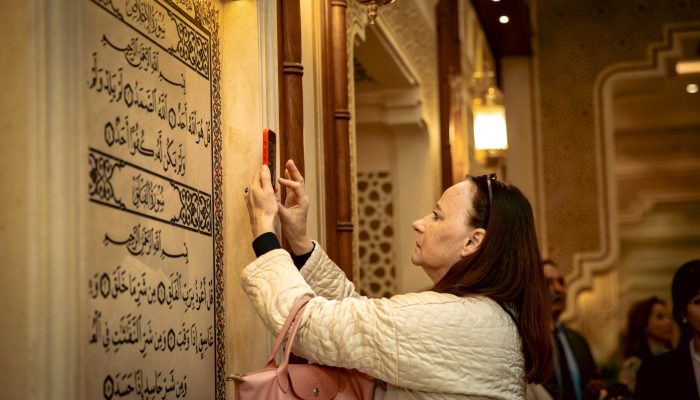 سورة الإخلاص
بسم الله الرحمن الرحيم
قل هو الله أحد ۝ الله الصمد ۝ لم يلد ولم
يولد ۝ ولم يكن له كفوا أحد ۝
سورة الفلق
بسم الله الرحمن الرحيم
قل أعوذ برب الفلق ۝ من شر ما خلق ۝ ومن شر
غاسق إذا وقب ۝ ومن شر النفثت في العقد ۝
ومن شر حاسد إذا حسد ۝